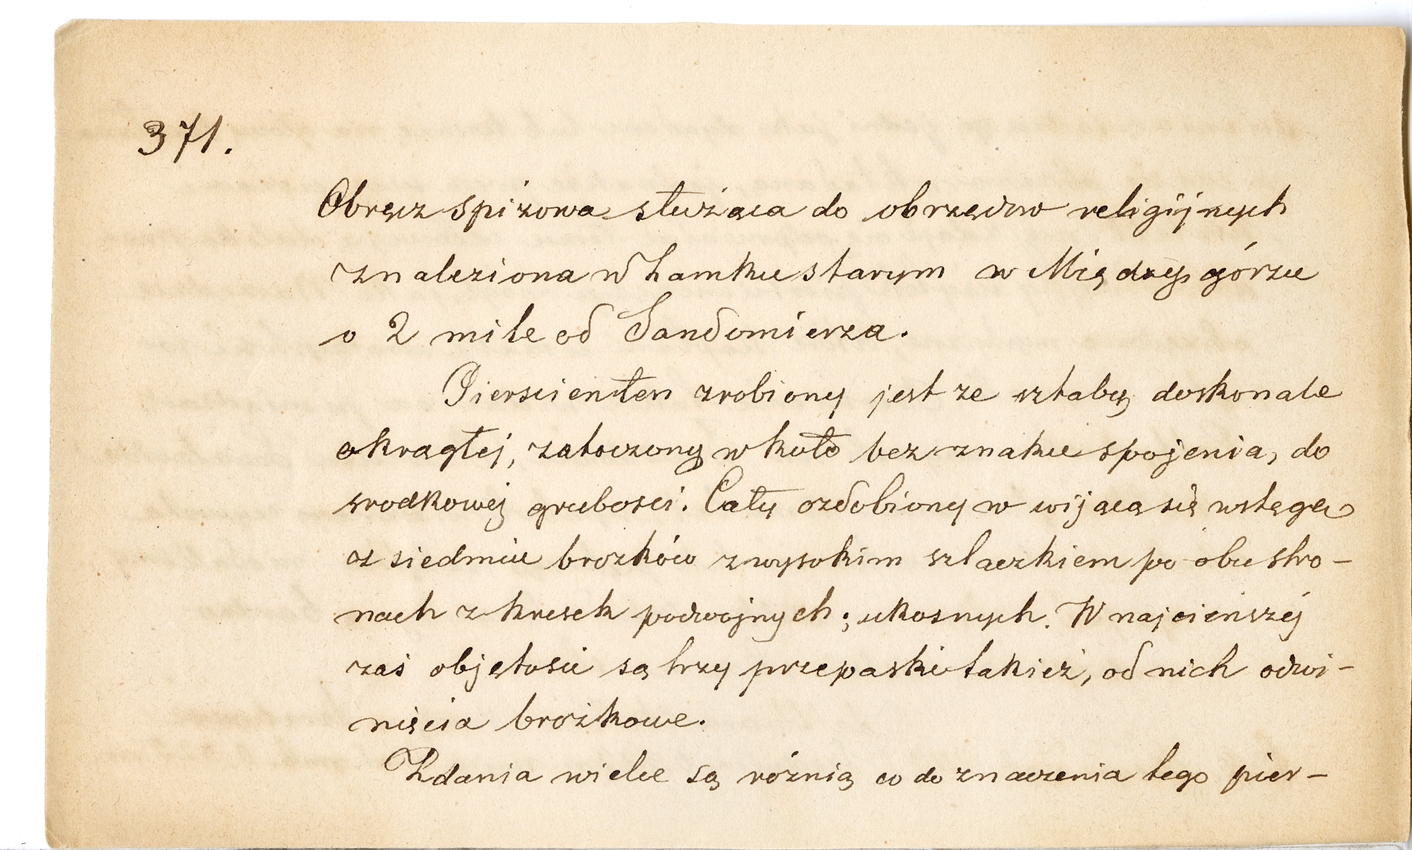 371.
Obręcz spiżowa służąca do obrzędów religijnych
znaleziona w Zamku starym w Międzygórzu
o 2 mile od Sandomierza.
Pierscień ten zrobiony jest ze sztaby doskonale
okrągłej, zatoczony w koło bez znaku spojenia, do
srodkowej grubosci. Cały ozdobiony w wijącą się wstęgę
z siedmiu brozków z wysokim szlaczkiem po obu stro-
nach z kresek podwojnych; ukosnych. W najcieńszéj
zaś objętosci są trzy przepaski takież, od nich odwi-
nięcia brożkowe.
Zdania wielce są różnią co do znaczenia tego pier-